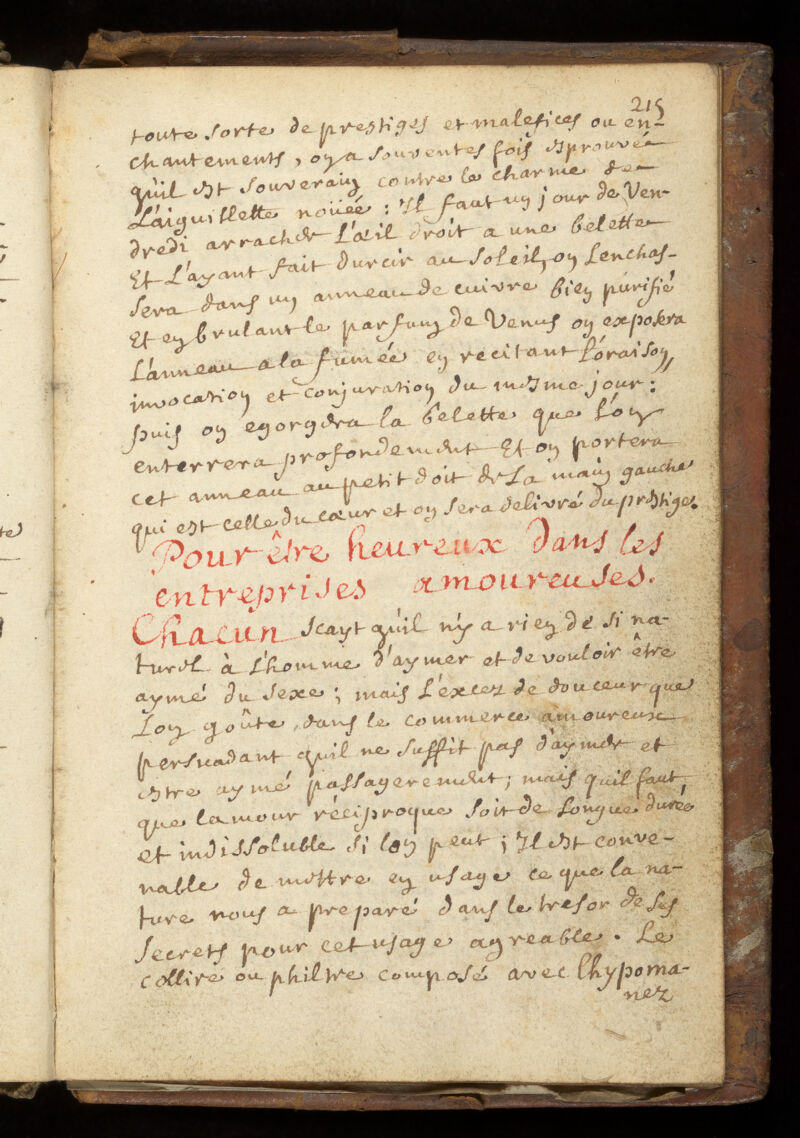 215
toute sorte de prestiges et malefices ou en-
chantements, on a souventes fois esprouvée
qu'il est souverain contre le charme de
L'aiguillette noüée : Il faut un jour de Ven-
dredi arracher L'œil droit a une belette
Et L'ayant fait durcir au soleil, on Lenchas-
sera dans un anneau de cuivre bien purifié
Et en brulant le parfum de Venus on exposera
L'anneau a la fumée en recitant L'oraison,
invocation et conjuration du mesme jour :
puis on egorgera la belette que L'on
enterrera profondement Et on portera
cet anneau au petit doit de La main gauche
qui est celle du cœur et on sera delivré du prestige.
Pour être heureux dans les
entreprises amoureuses.
Chacun scayt qu'il n'y a rien de si na-
turel à L'homme d'aymer et de vouloir être
aymé du sexe ; mais L'excez de douceur que
Lon goûte dans le commerce amoureux
persuadant qu'il ne suffit pas d'aymer et
estre aymé passagerement ; mais qu'il faut
que lamour réciproque soit de Longue durée
et indissoluble si lon peut ; Il est conve-
nable de mettre en usage ce que la na-
ture nous a preparé dans le tresor de ses
secrets pour cet usage agreable. Le
collire ou philtre composé avec Lhypoma-
nez